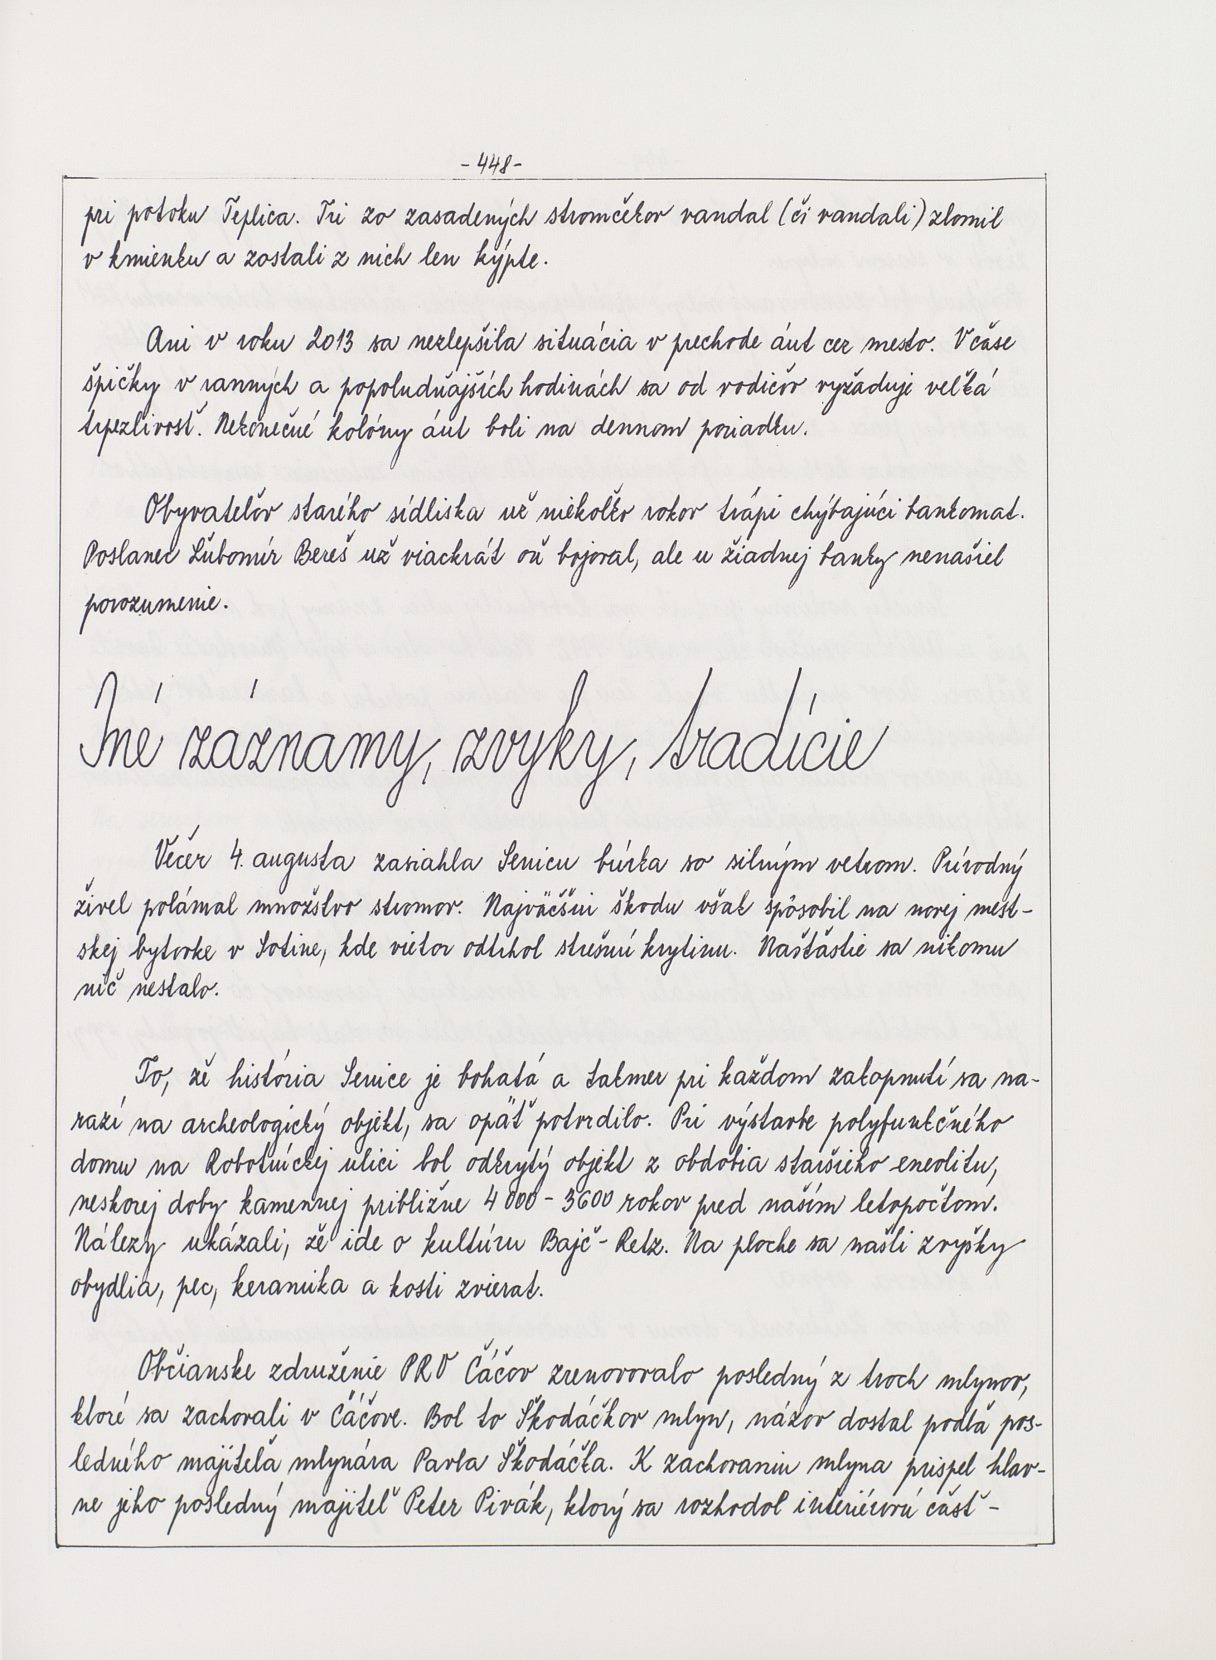 - 448 -
pri potoku Teplica. Tri zo zasadených stromčekov vandal (či vandali) zlomil
v kmienku a zostali z nich len kýpte.
Ani v roku 2013 sa nezlepšila situácia v prechode áut cez mesto. V čase
špičky v ranných a popoludňajších hodinách sa od vodičov vyžaduje veľká
trpezlivosť. Nekonečné kolóny áut boli na dennom poriadku.
Obyvateľov starého sídliska už niekoľko rokov trápi chýbajúci bankomat.
Poslanec Ľubomír Bereš už viackrát oň bojoval, ale u žiadnej banky nenašiel
porozumenie.
Iné záznamy, zvyky, tradície
Večer 4. augusta zasiahla Senicu búrka so silným vetrom. Prírodný
živel polámal množstvo stromov. Najväčšiu škodu však spôsobil na novej mest-
skej bytovke v Sotine, kde vietor odtrhol strešnú krytinu. Našťastie sa nikomu
nič nestalo.
To, že história Senice je bohatá a takmer pri každom zakopnutí sa na-
razí na archeologický objekt, sa opäť potvrdilo. Pri výstavbe polyfunkčného
domu na Robotníckej ulici bol odkrytý objekt z obdobia staršieho eneolitu,
neskorej doby kamennej približne 4 000 - 3600 rokov pred naším letopočtom.
Nálezy ukázali, že ide o kultúru Bajč - Retz. Na ploche sa našli zvyšky
obydlia, pec, keramika a kosti zvierat.
Občianske združenie PRO Čáčov zrenovovalo posledný z troch mlynov,
ktoré sa zachovali v Čáčove. Bol to Škodáčkov mlyn, názov dostal podľa pos-
ledného majiteľa mlynára Pavla Škodáčka. K zachovaniu mlyna prispel hlav-
ne jeho posledný majiteľ Peter Pivák, ktorý sa rozhodol interiérovú časť -